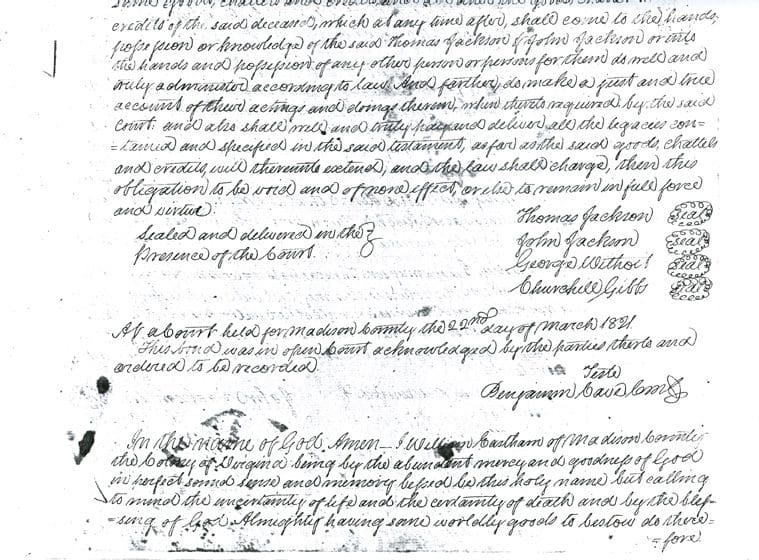 same goods, chattels and credits
credits of the said deceased, which at any time after, shall come to the hands,
possession or knowledge of the said Thomas Jackson & John Jackson or into
the hands and possession of any other person or persons for them do well and
truly administer according to law. And farther, do make a just and true
account of their actings and doings therein, when thereto required by the said
Court. and also shall well and truly pay and deliver all the legacies con=
=tained and specified in the said testament, as far as the said goods, chattels
and credits, will thereunto extend, and the law shall charge, then this
obligation to be void and of none effect, or else to remain in full force
and virtue.
Sealed and delivered in the
Presence of the Court
Thomas Jackson Seal
John Jackson Seal
George Seal
Churchill Gibbs Seal
At a Court held for Madison County the 22nd day of March 1821.
This bond was in open Court acknowledged by the parties thereto and
ordered to be recorded.
Teste
Benjamin Cave
In the name of God Amen — I William Eastham of Madison County
the Colony of Virginia being by the abundent mercy and goodness of God
in perfect sound sense and memory blessed be this holy name but calling
to mind the uncertainty of life and the certainty of death and by the bles=
=sing of God Almighty having some worldly goods to bestow do there=
=fore